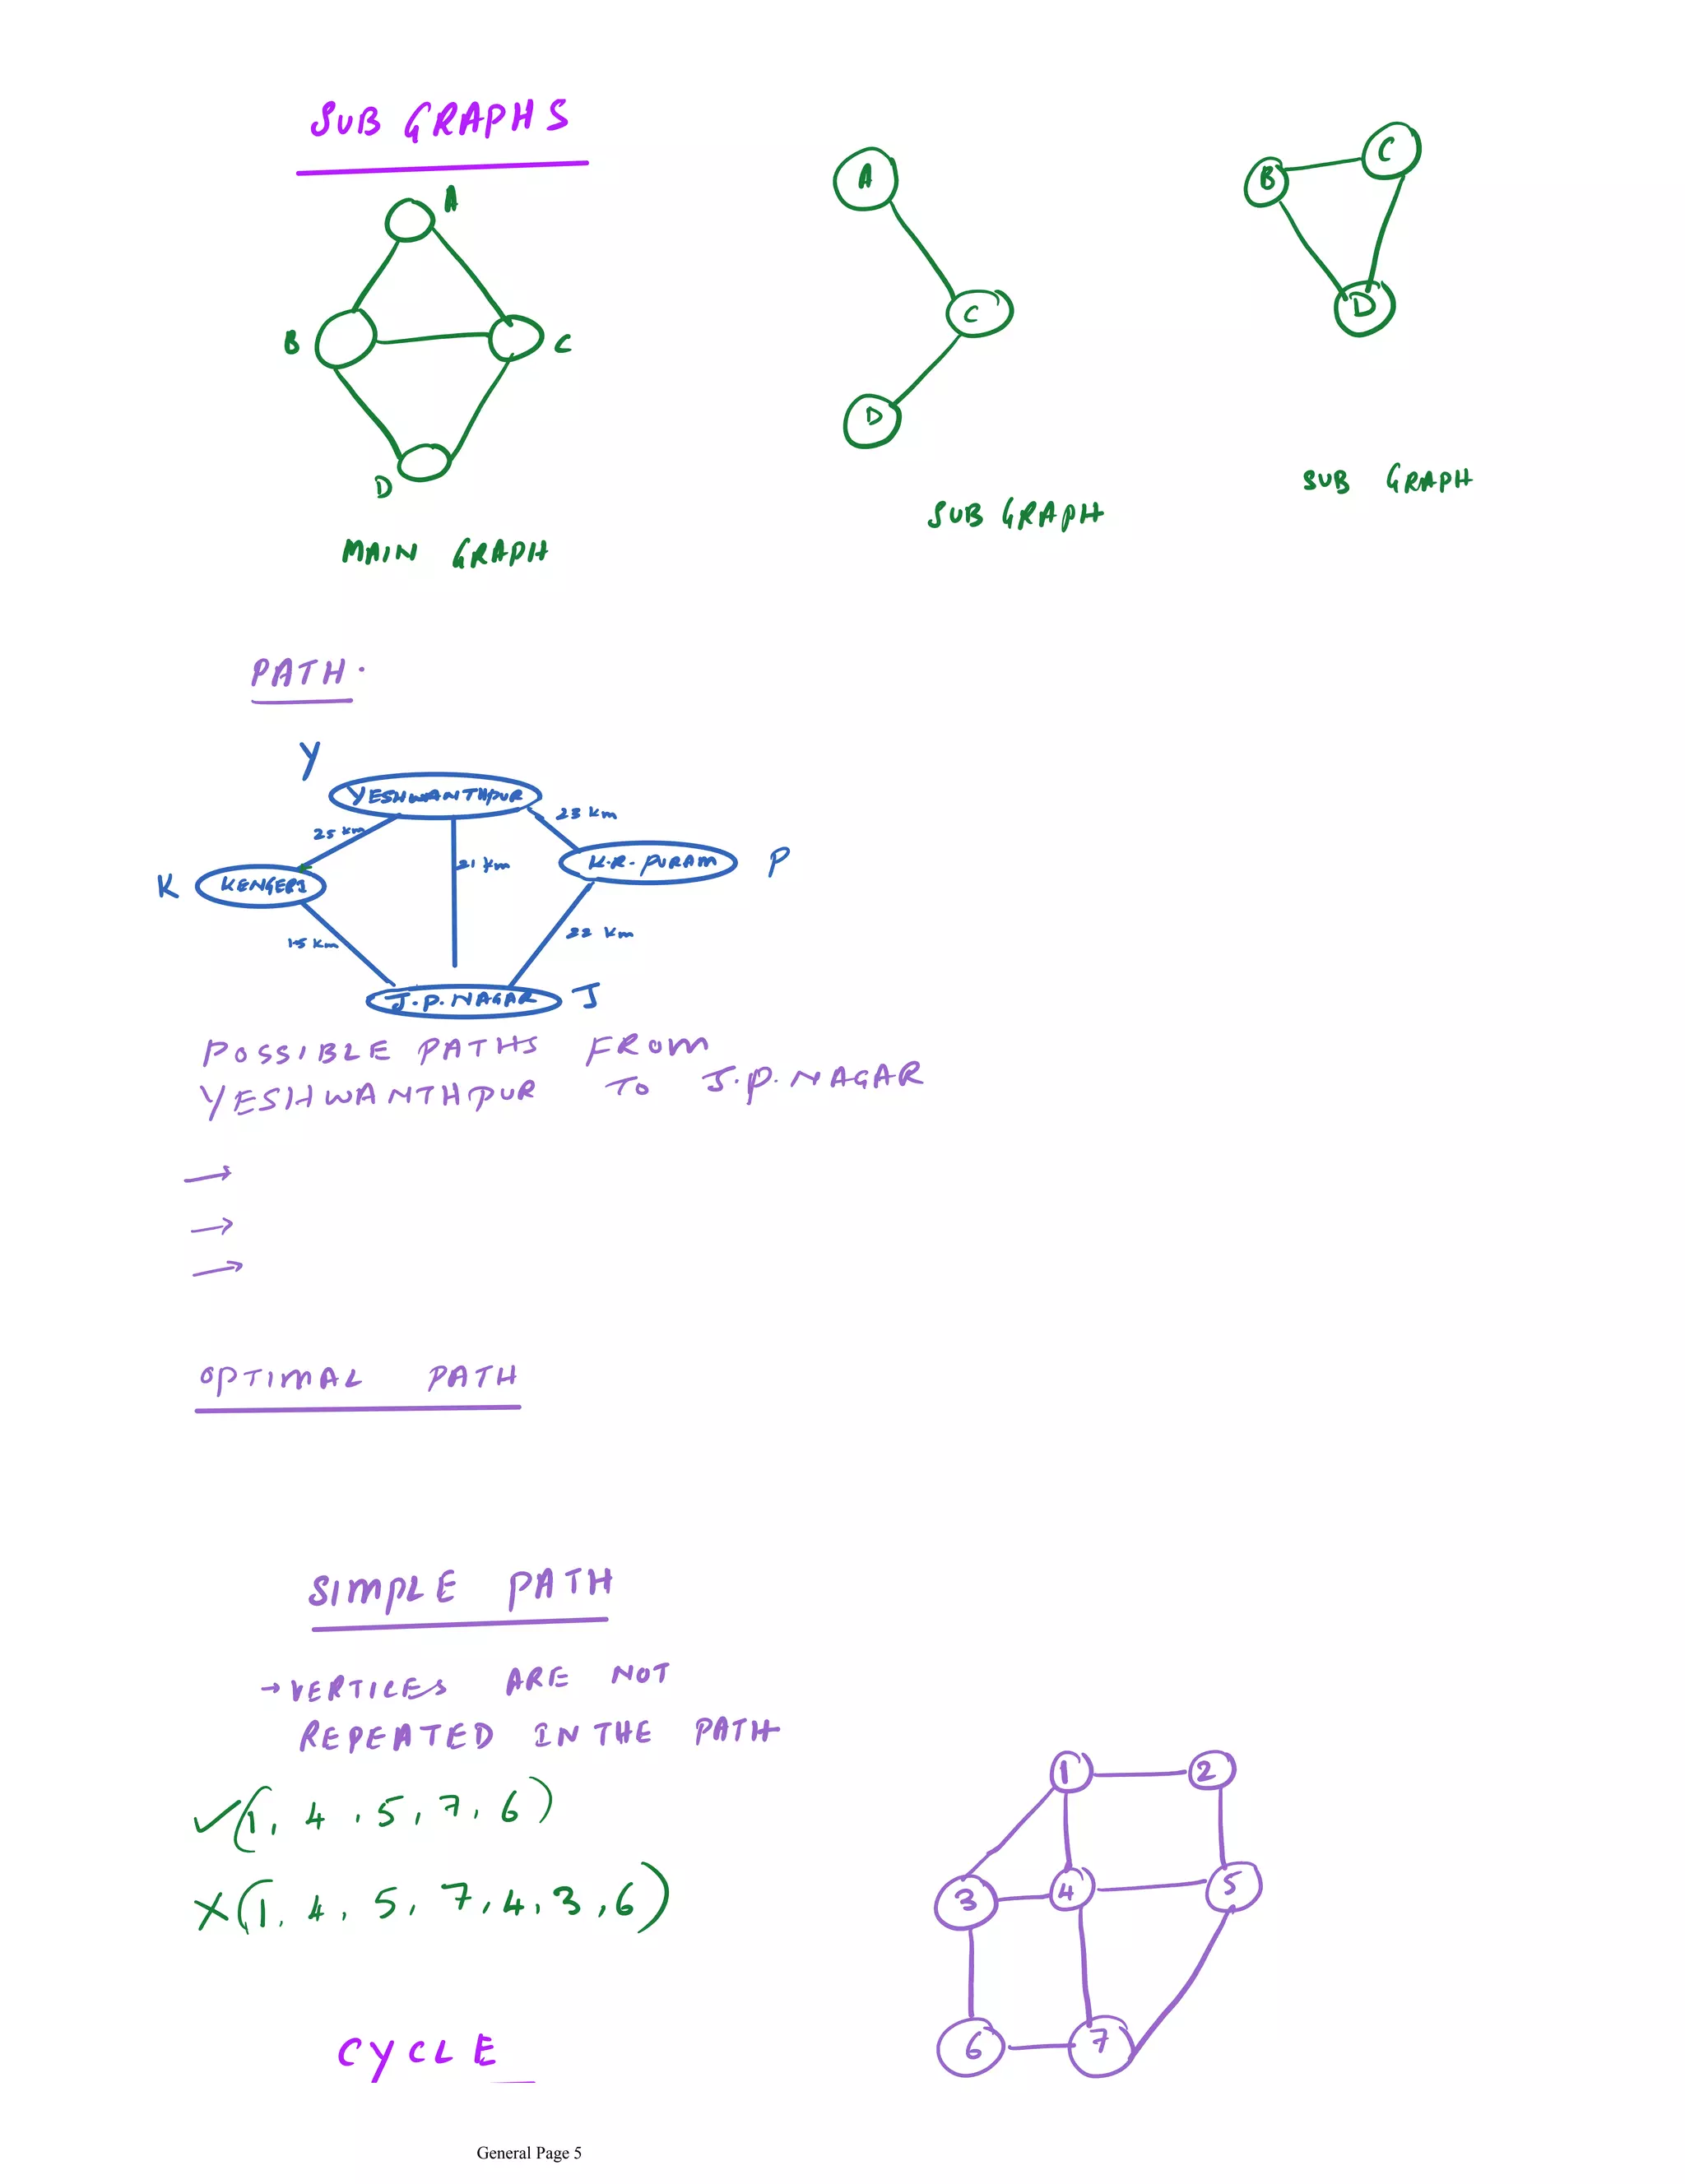 SUB GRAPHS
A
B
C
D
MAIN GRAPH
A
C
D
SUB GRAPH
B
C
D
SUB GRAPH
PATH.
Y
YESHWANTHPUR
25 km
23 km
21 km
K
KENGERI
K.R. PURAM
P
15 km
22 km
J.P. NAGAR
J
POSSIBLE PATHS FROM
YESHWANTHPUR TO J.P. NAGAR
→
→
→
OPTIMAL PATH
SIMPLE PATH
→ VERTICES ARE NOT
REPEATED IN THE PATH
✓(1, 4, 5, 7, 6)
X(1, 4, 5, 7, 4, 3, 6)
1
2
3
4
5
6
7
CYCLE
General Page 5